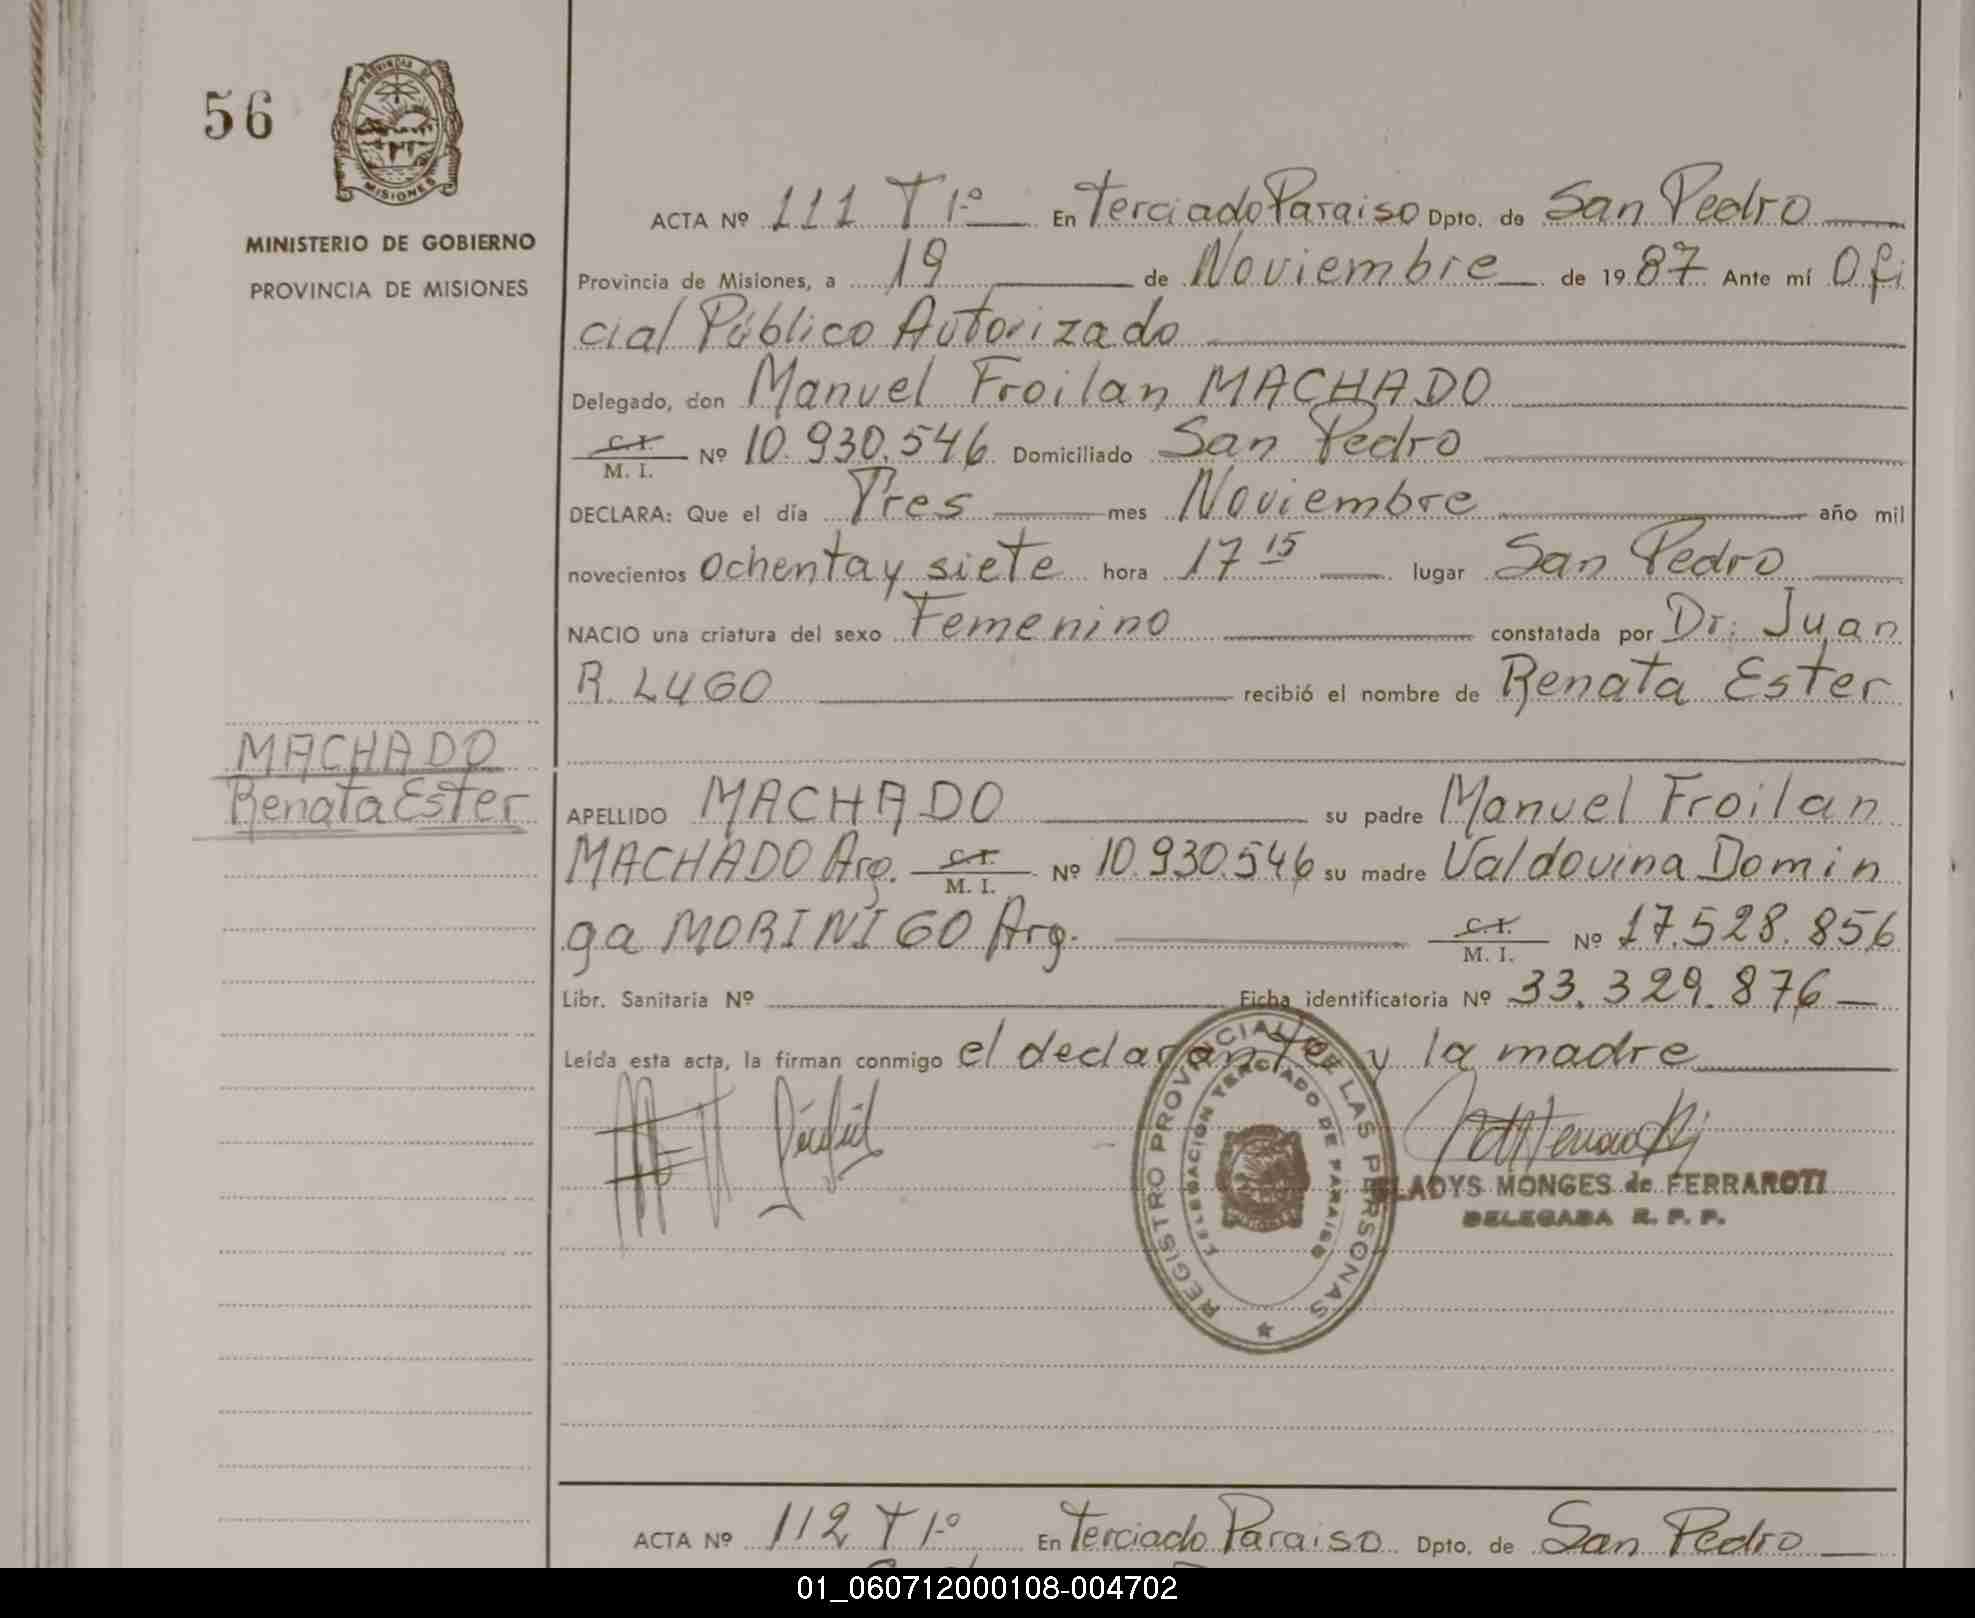 56
PROVINCIA DE
MISIONES
MINISTERIO DE GOBIERNO
PROVINCIA DE MISIONES
ACTA Nº 111 T 1º En Terciado Paraiso Dpto. de San Pedro
Provincia de Misiones, a 19 de Noviembre de 1987 Ante mí Ofi
cial Público Autorizado
Delegado, don Manuel Froilan MACHADO
C.I. M. I. Nº 10.930.546 Domiciliado San Pedro
DECLARA: Que el día Tres mes Noviembre año mil
novecientos ochenta y siete hora 17 15 lugar San Pedro
NACIO una criatura del sexo Femenino constatada por Dr. Juan
R. LUGO recibió el nombre de Renata Ester
MACHADO
Renata Ester
APELLIDO MACHADO su padre Manuel Froilan
MACHADO Arg. C.I. M. I. Nº 10.930.546 su madre Valdovina Domin
ga MORINIGO Arg. C.I. M. I. Nº 17.528.856
Libr. Sanitaria Nº Ficha identificatoria Nº 33.329.876
Leída esta acta, la firman conmigo el declarante y la madre
REGISTRO PROVINCIAL DE LAS PERSONAS
DELEGACION TERCIADO DE PARAISO
GLADYS MONGES de FERRAROTI
DELEGADA R. P. P.
ACTA Nº 112 T 1º En Terciado Paraiso Dpto. de San Pedro
01_060712000108-004702